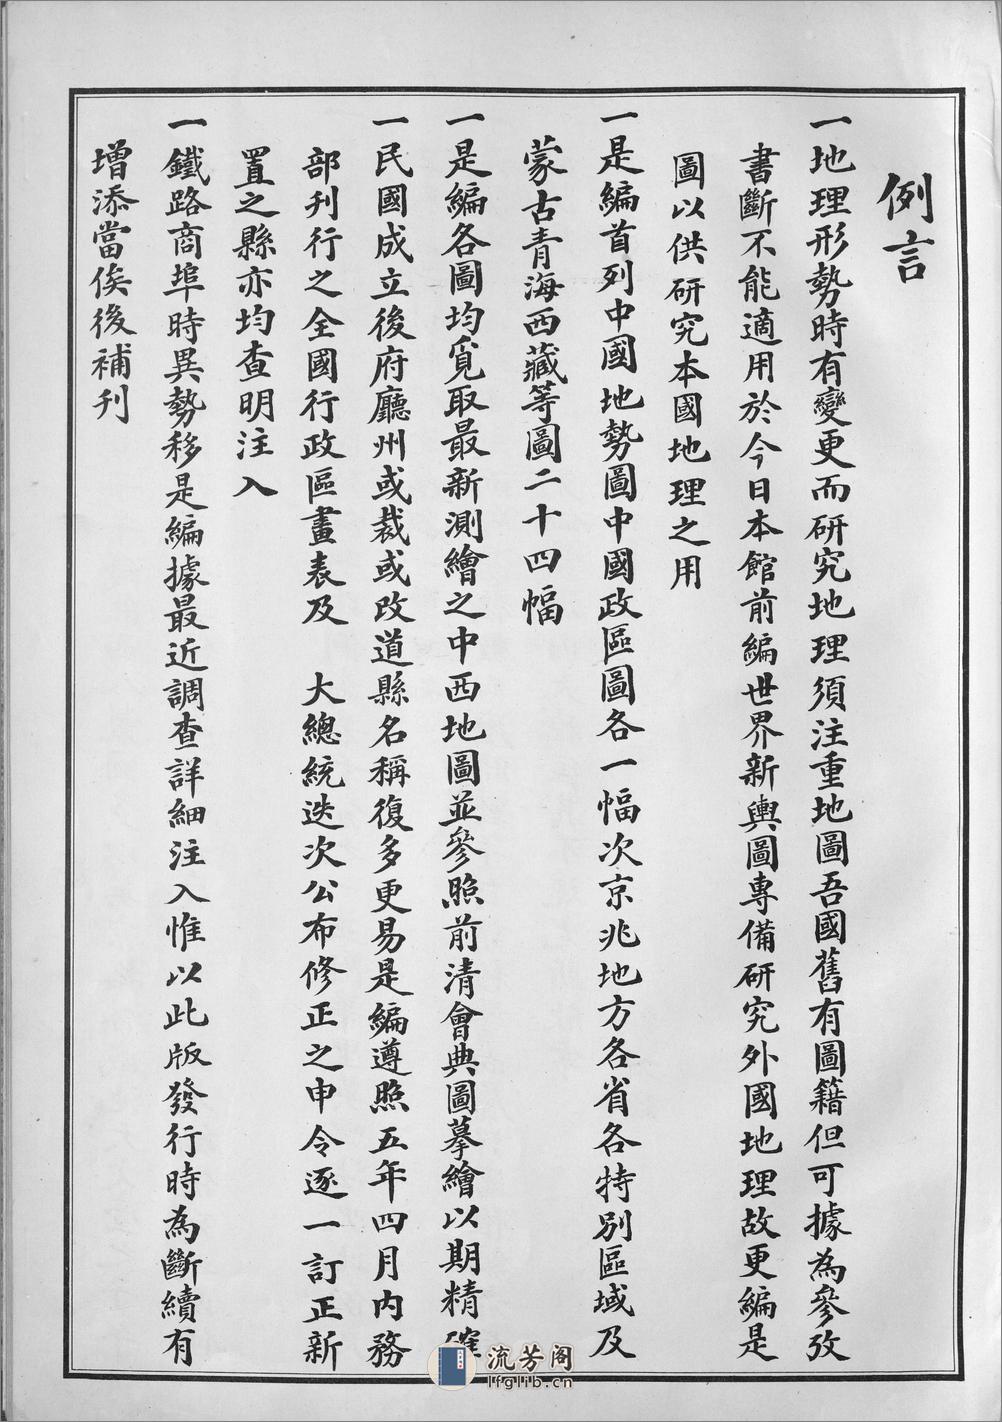 例言
一地理形勢時有變更而研究地理須注重地圖吾國舊有圖籍但可據為參攷
書斷不能適用於今日本館前編世界新輿圖專備研究外國地理故更編是
圖以供研究本國地理之用
一是編首列中國地勢圖中國政區圖各一幅次京兆地方各省各特別區域及
蒙古青海西藏等圖二十四幅
一是編各圖均覓取最新測繪之中西地圖並參照前清會典圖摹繪以期精確
一民國成立後府廳州或裁或改道縣名稱復多更易是編遵照五年四月內務
部刊行之全國行政區畫表及 大總統迭次公布修正之申令逐一訂正新
置之縣亦均查明注入
一鐵路商埠時異勢移是編據最近調查詳細注入惟以此版發行時為斷續有
增添當俟後補刊
流芳阁
lfglib.cn